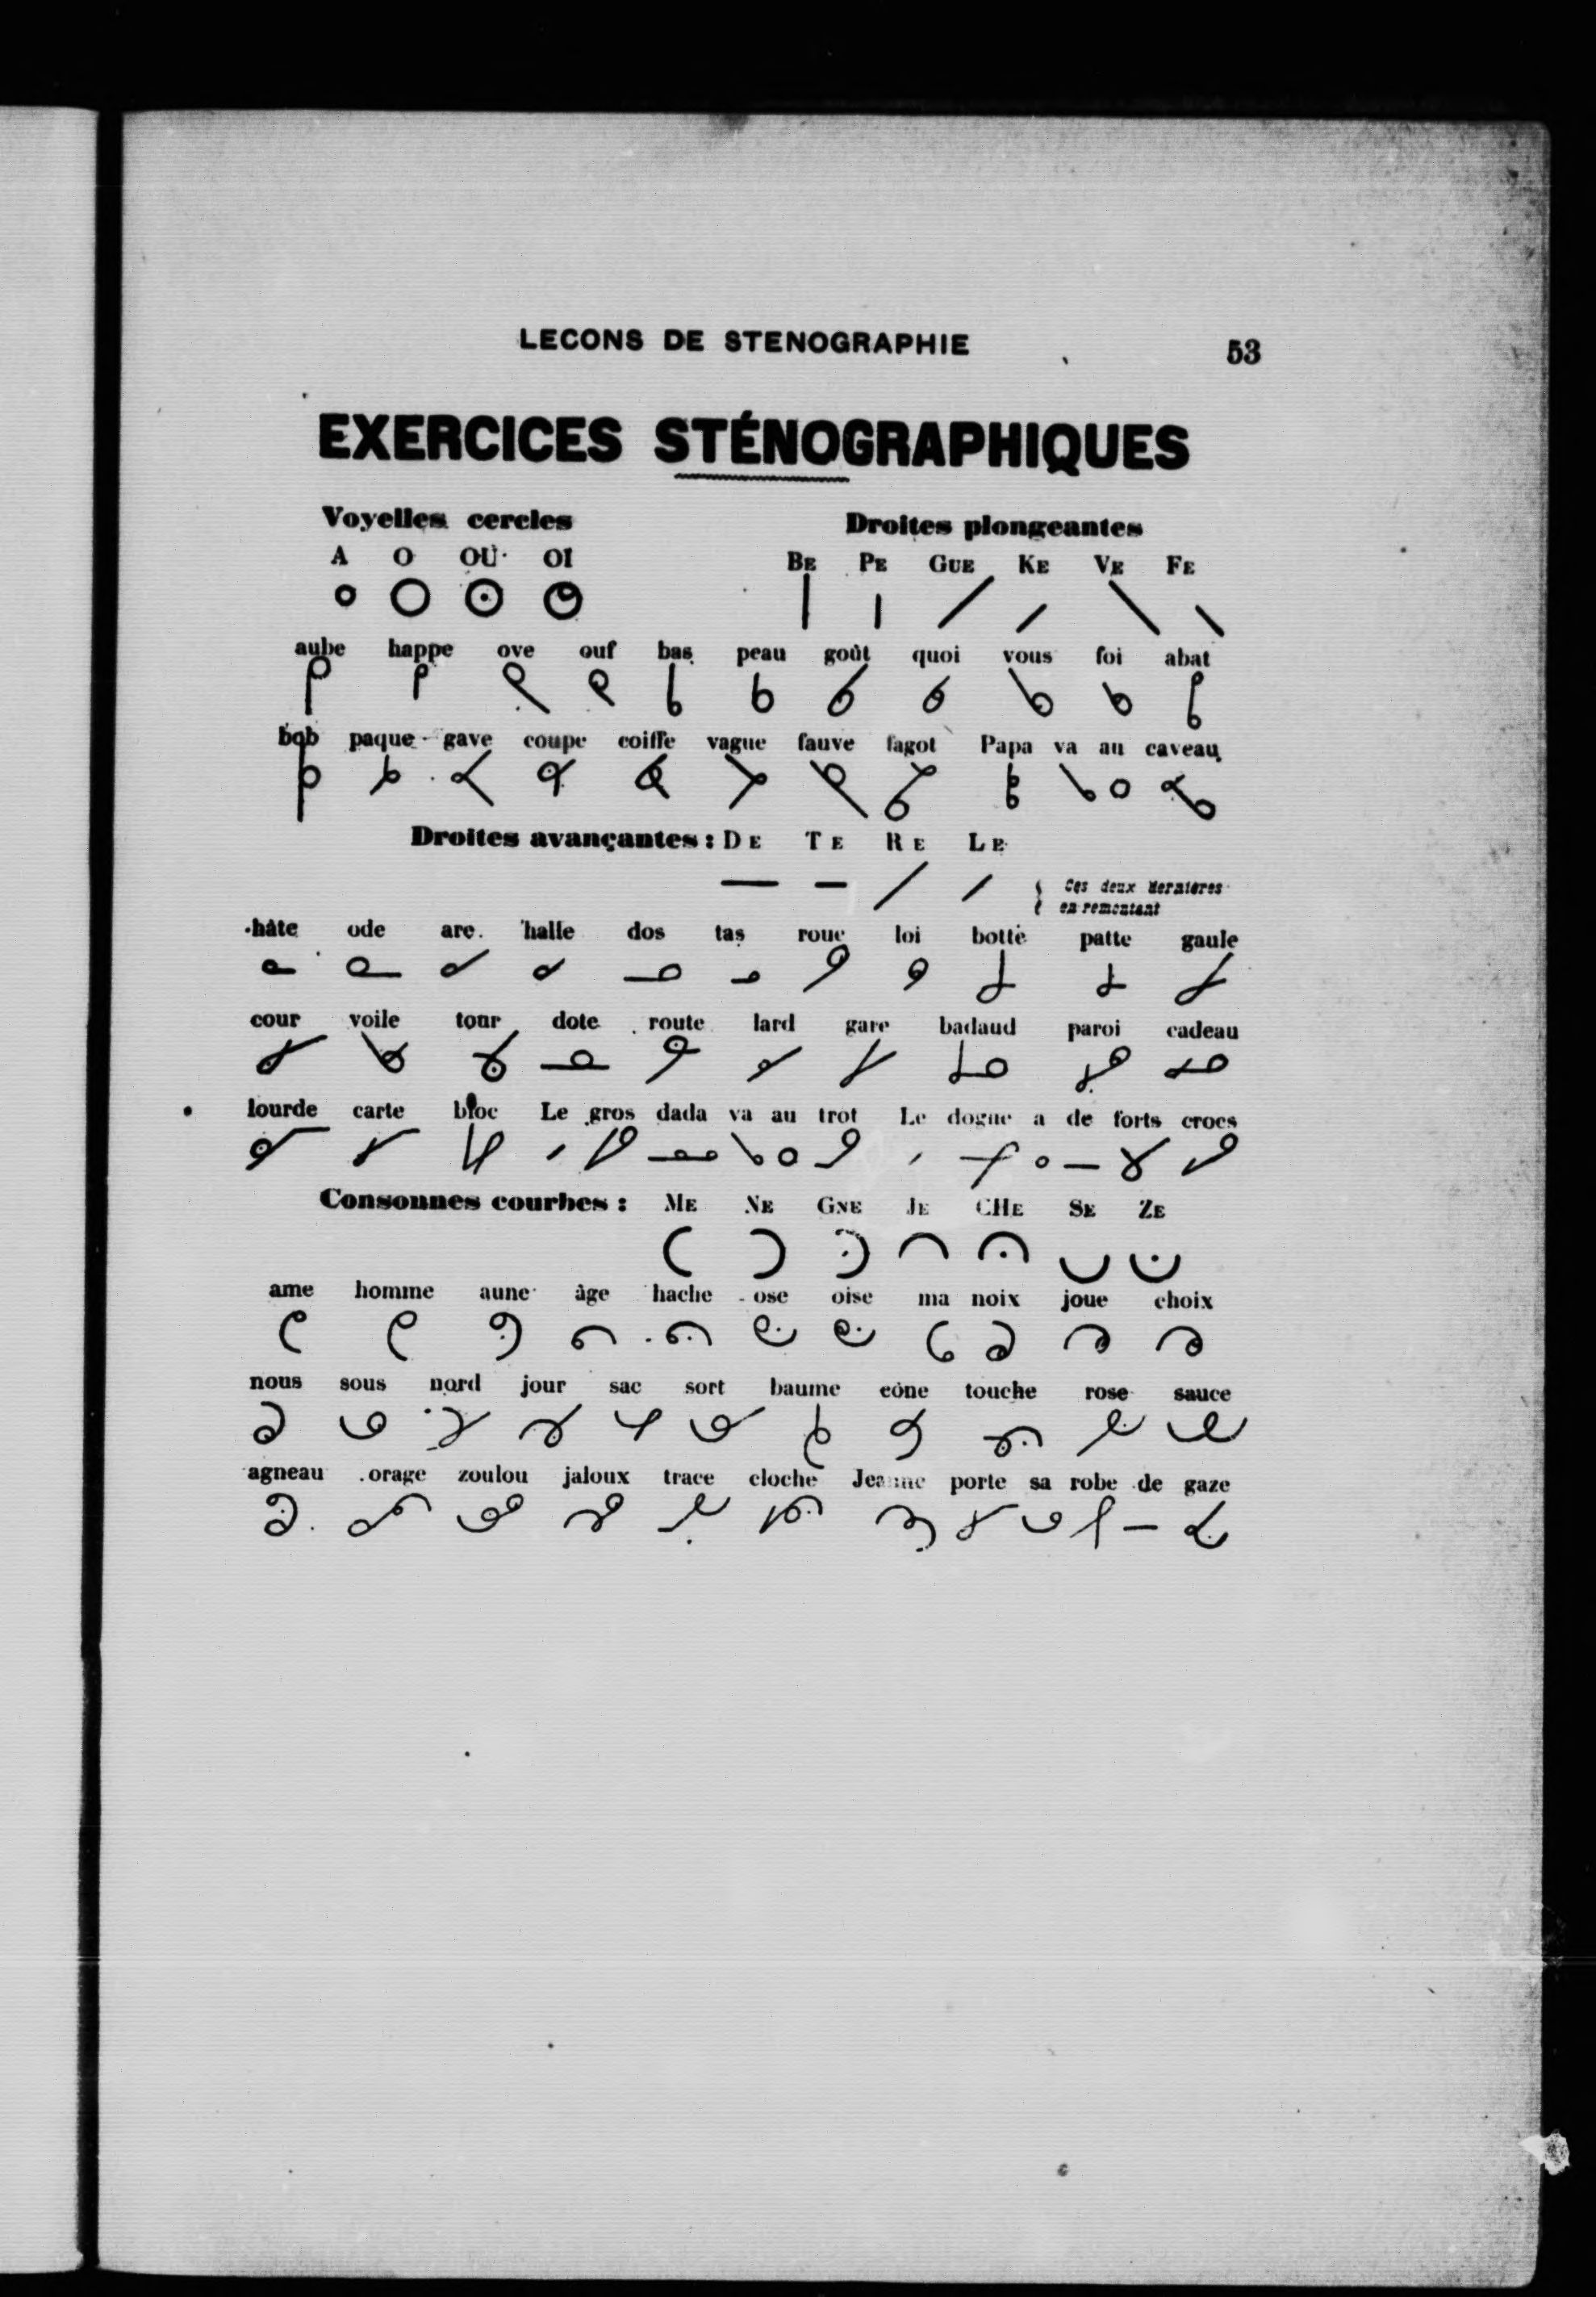 LECONS DE STENOGRAPHIE 53
EXERCICES STÉNOGRAPHIQUES
Voyelles cercles Droites plongeantes
A O OU OI BE PE GUE KE VE FE
aube happe ove ouf bas peau goût quoi vous foi abat
bob paque gave coupe coiffe vague fauve fagot Papa va au caveau
Droites avançantes : DE TE RE LE
Ces deux dernières
en remontant
hâte ode are halle dos tas roue loi botte patte gaule
cour voile tour dote route lard gare badaud paroi cadeau
lourde carte bloc Le gros dada va au trot Le dogue a de forts crocs
Consonnes courbes : ME NE GNE JE CHE SE ZE
ame homme aune âge hache ose oise ma noix joue choix
nous sous nord jour sac sort baume cône touche rose sauce
agneau orage zoulou jaloux trace cloche Jeanne porte sa robe de gaze